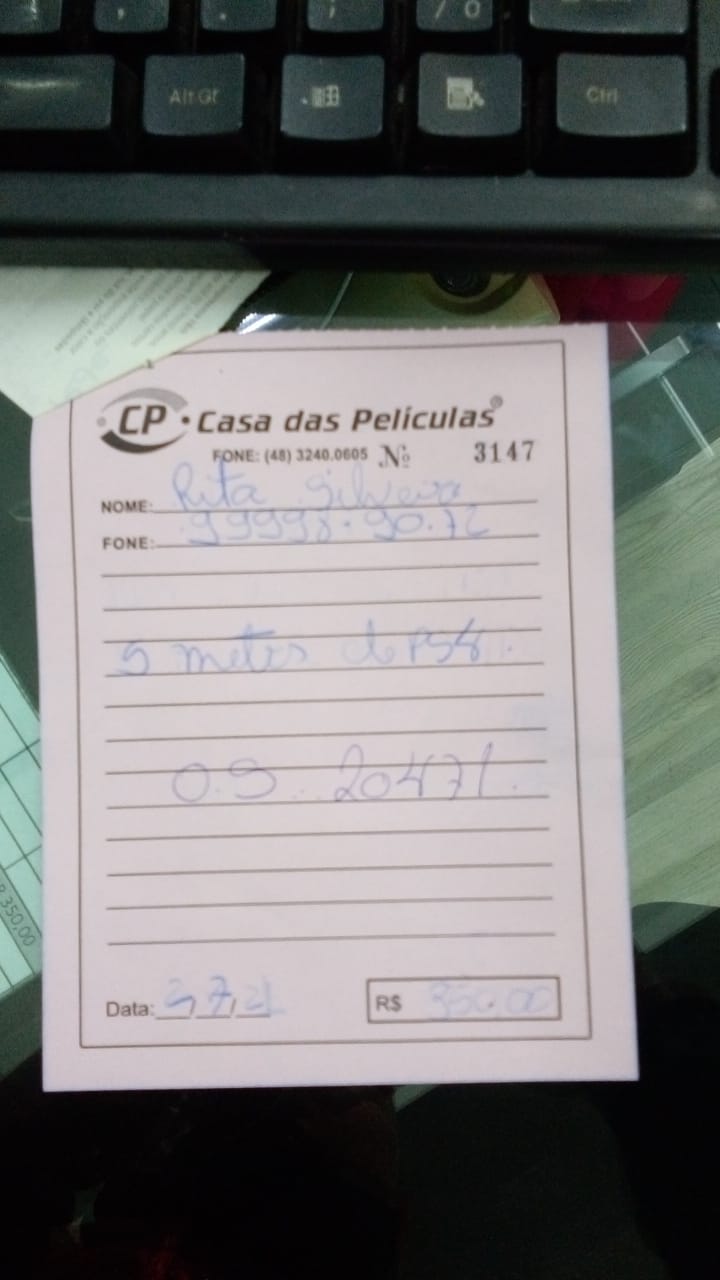 Alt Gr
Ctrl
CP • Casa das Películas®
FONE: (48) 3240.0605 Nº 3147
NOME: Rita Silveira
FONE: 99998.90.72
5 metros de PS8.
O.S 20471.
Data: 3,7,21 R$ 350,00
R 350,00